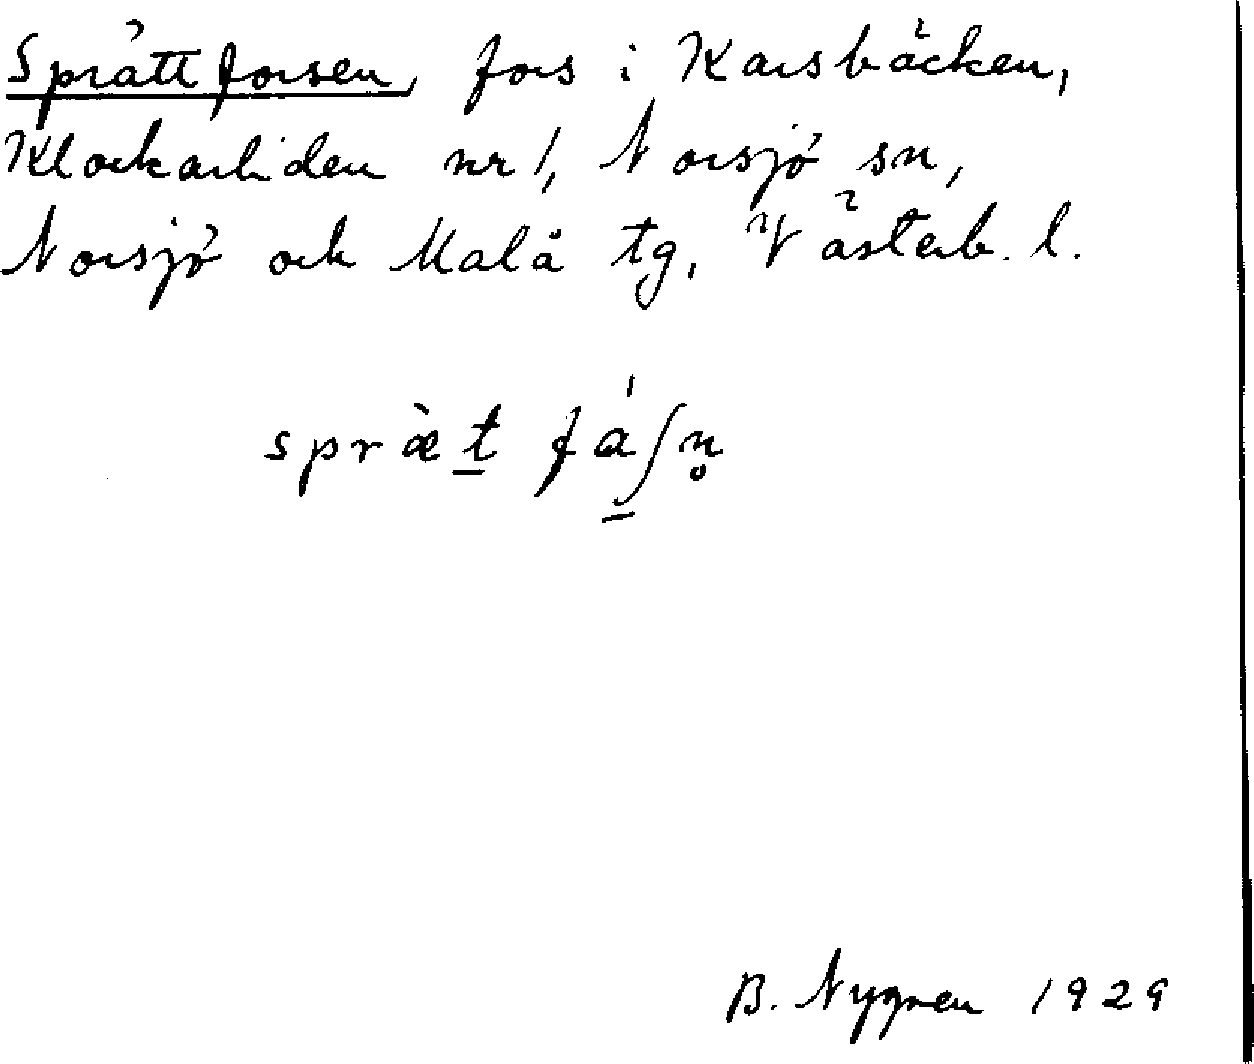 Sprättforsen, fors i Karsbäcken,
Klockarliden nr 1, Norsjö sn,
Norsjö ock Malå tg, Västerb. l.
spræ̀t fáʃn̥
B. Nygren 1929